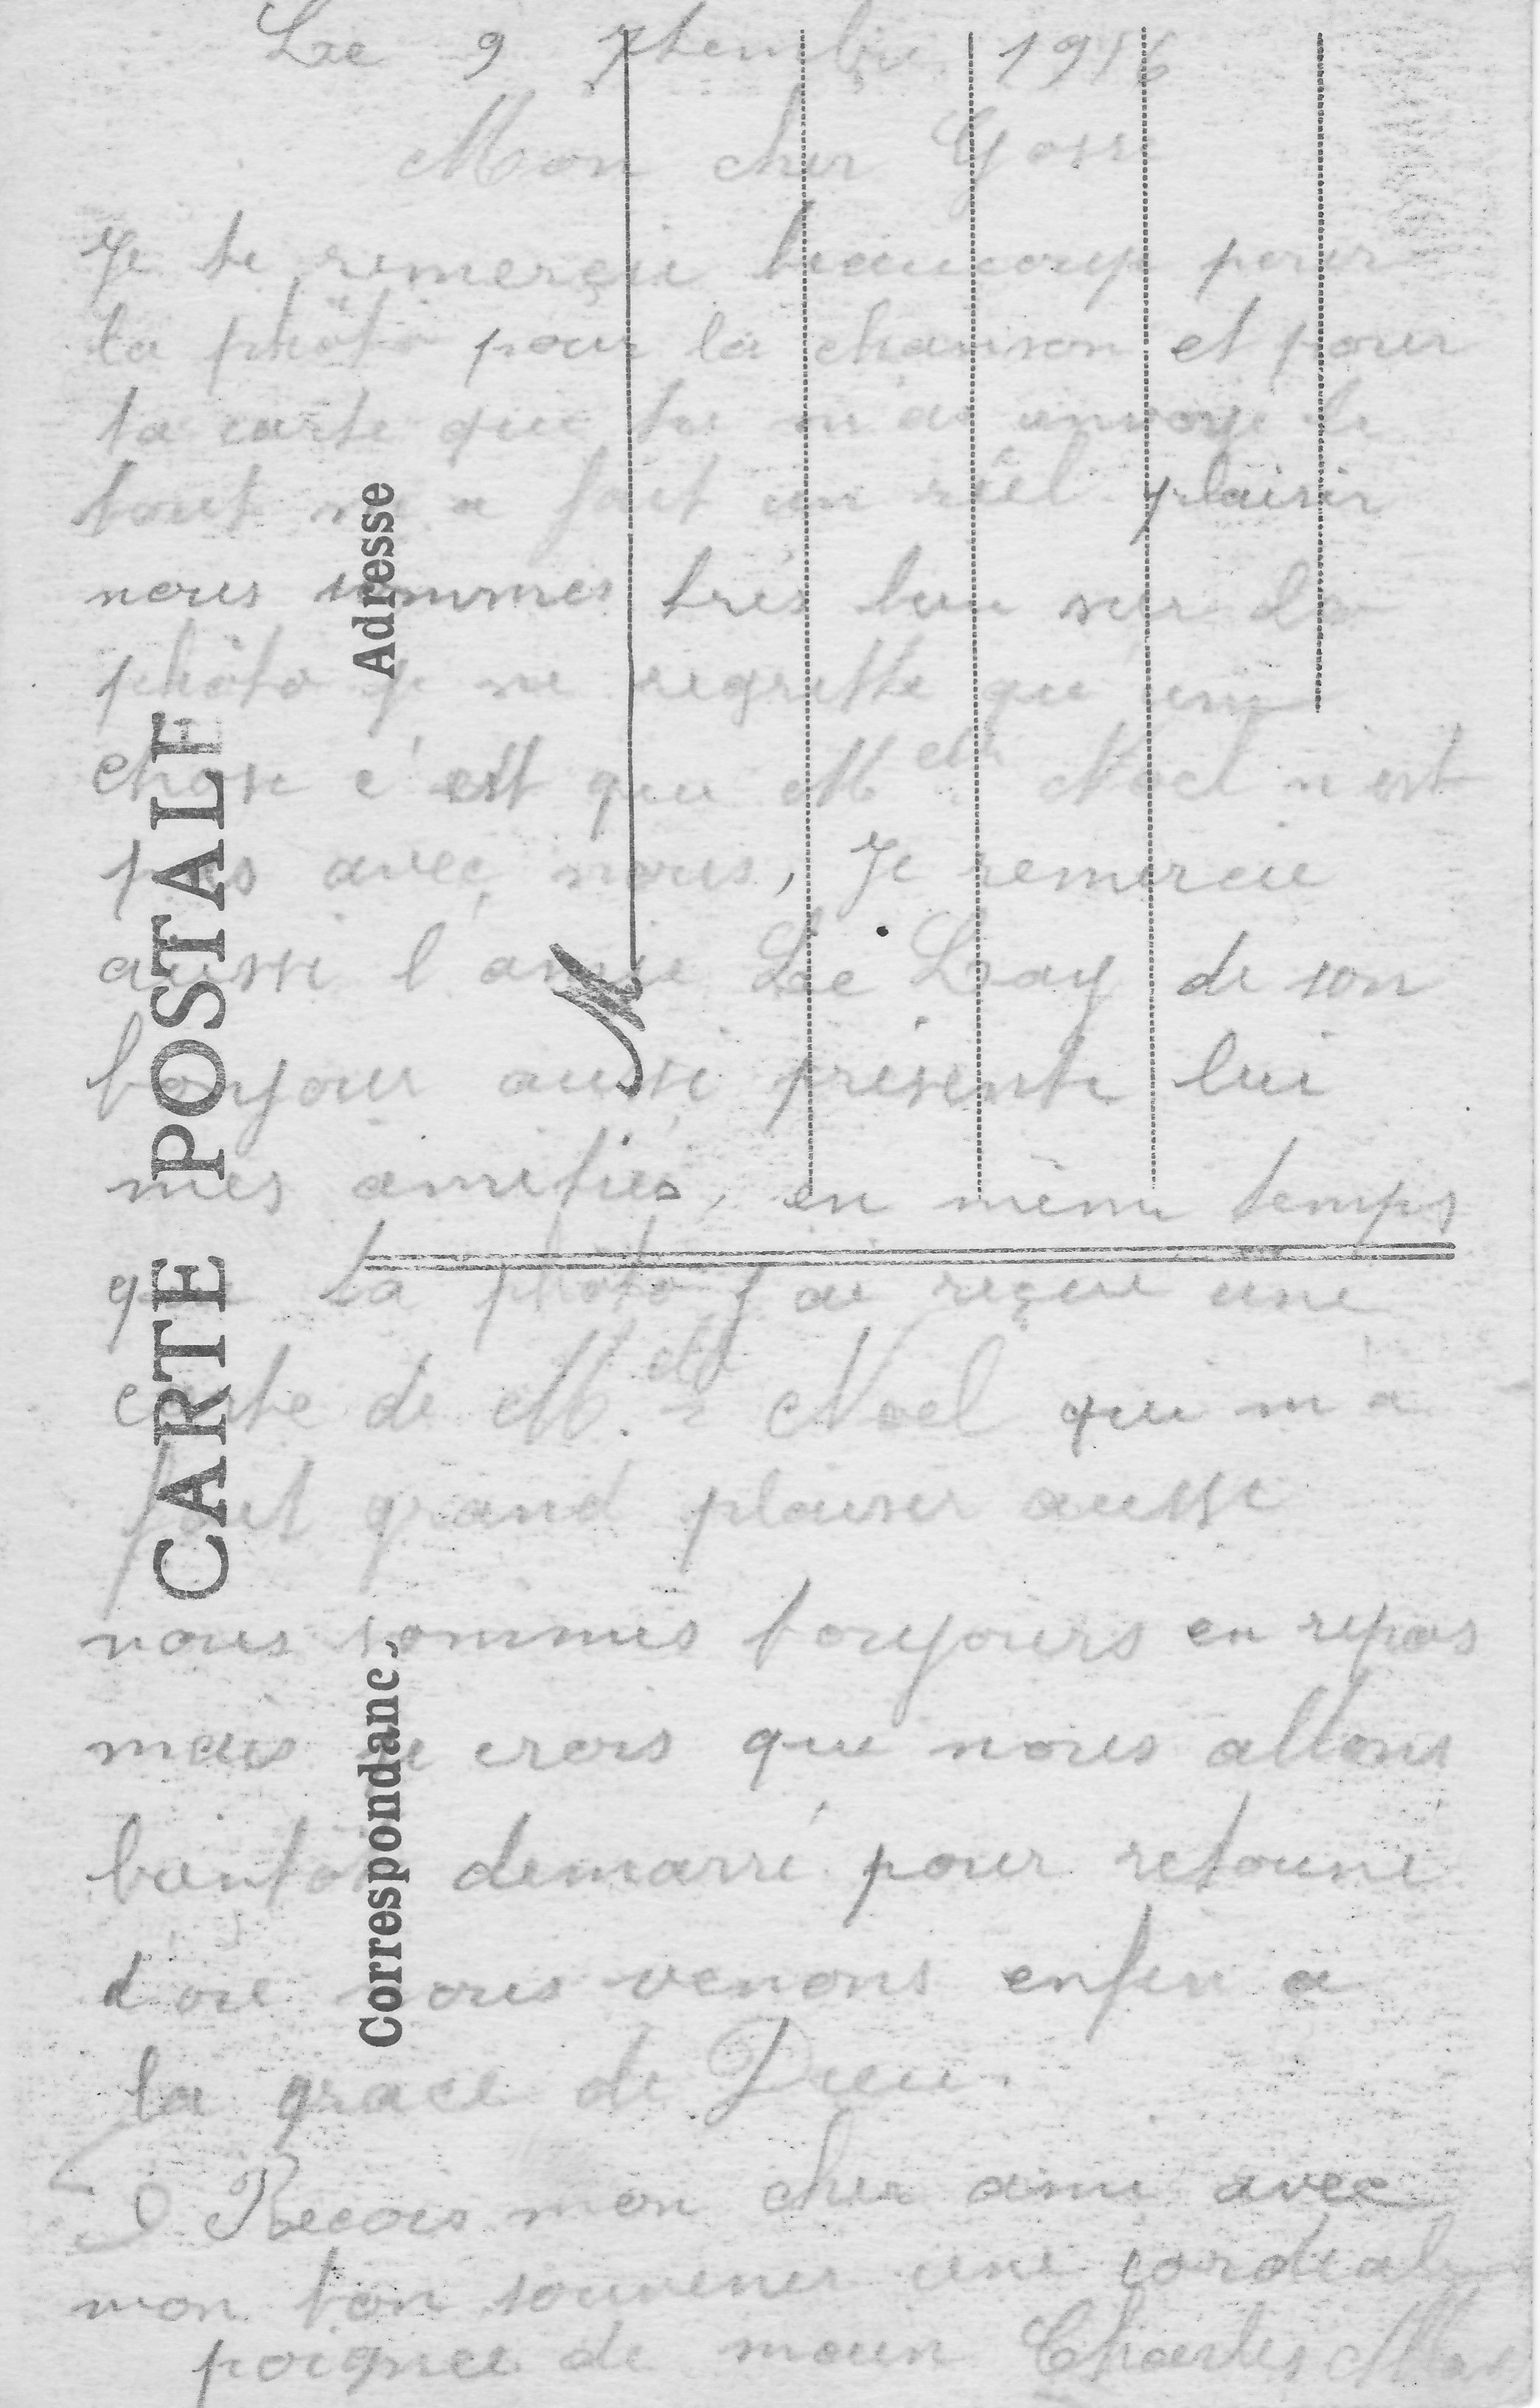 Le 9 7tembre 1916
Mon cher Goss
Je te remerçie beaucoup pour
ta phôto pour la chanson et pour
ta carte que tu m'as envoye le
tout m'a fait un réel plaisir
nous sommes trés bien sur la
phôto je ne regrette qu'une
chose c'est que Melle Noel n'est
pas avec nous, Je remercie
aussi l'amie Le Lay de son
bonjour aussi présente lui
mes amitiés, en même temps
que ta photo j'ai reçue une
carte de Melle Noel qui m'a
fait grand plaisir aussi
nous sommes toujours en repos
mais je crois que nous allons
bientôt demarré pour retourné
d'ou nous venons enfin a
la grace de Dieu.
Recois mon cher ami avec
mon bon souvenir une cordial
poignee de main Charles
CARTE POSTALE
Correspondanc
Adresse
M